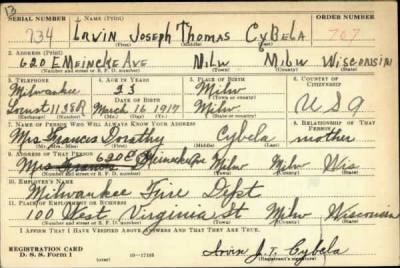 SERIAL NUMBER 1. NAME (Print) ORDER NUMBER
734 Irvin Joseph Thomas Cybela 767
(First) (Middle) (Last)
2. ADDRESS (Print)
620 E Meincke Ave Milw Milw Wisconsin
(Number and street or R. F. D. number) (Town) (County) (State)
3. TELEPHONE 4. AGE IN YEARS 5. PLACE OF BIRTH 6. COUNTRY OF CITIZENSHIP
Milwaukee 23 Milw
(Town or county)
DATE OF BIRTH
Locust 1138R March 16 1917 Milw U S A
(Exchange) (Number) (Mo.) (Day) (Yr.) (State or country)
7. NAME OF PERSON WHO WILL ALWAYS KNOW YOUR ADDRESS 8. RELATIONSHIP OF THAT PERSON
Mrs Frances Dorothy Cybela mother
(Mr., Mrs., Miss) (First) (Middle) (Last)
9. ADDRESS OF THAT PERSON
620 E Meincke Ave Milw Milw Wis
(Number and street or R. F. D. number) (Town) (County) (State)
10. EMPLOYER'S NAME
Milwaukee Fire Dept
11. PLACE OF EMPLOYMENT OR BUSINESS
100 West Virginia St Milw Wisconsin
(Number and street or R. F. D. number) (Town) (County) (State)
I AFFIRM THAT I HAVE VERIFIED ABOVE ANSWERS AND THAT THEY ARE TRUE.
REGISTRATION CARD
D. S. S. Form 1 16—17105 Irvin J. T. Cybela
(Registrant's signature)